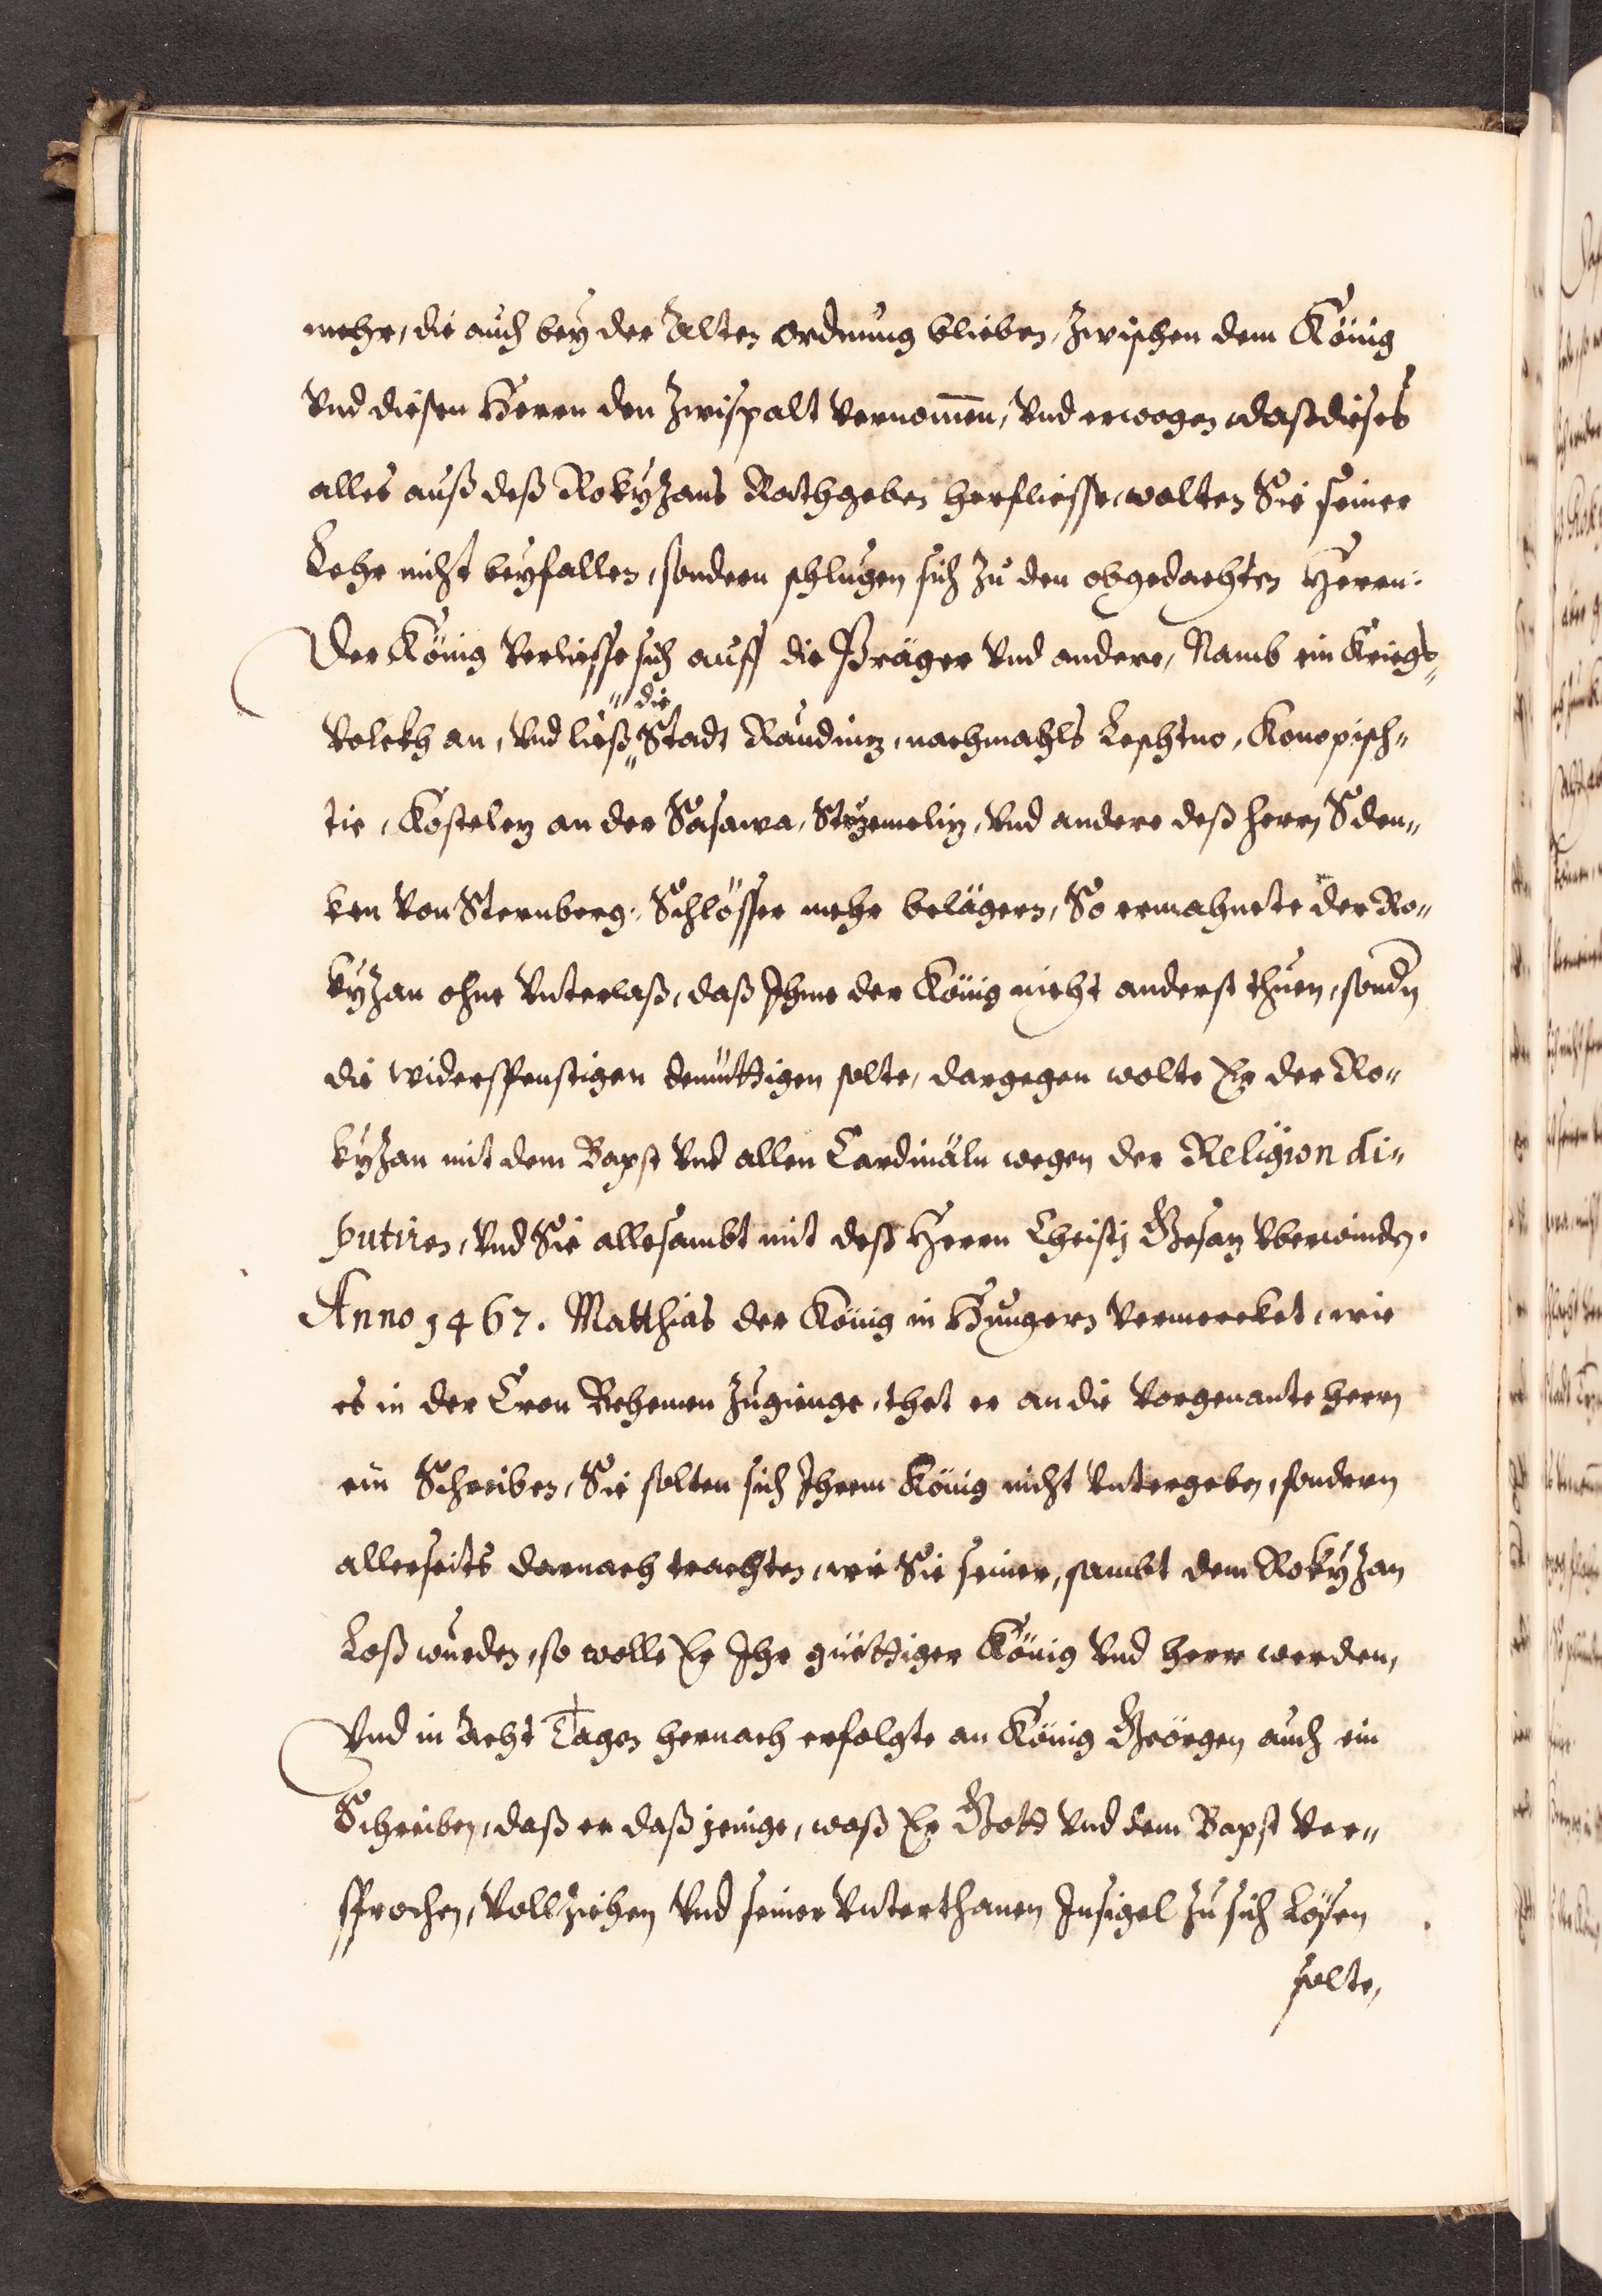 mehr, die auch bey der Alten ordnung blieben, Zwischen dem König
Vnd diesen Herrn den Zwispalt vernom̄en, Vnd erwogen daß dieses
alles auß deß Rokyzans Rathgeben herfliesse, wolten Sie seiner
Lehr nicht beyfallen, sondern schlugen sich zu den obgedachten Herrn.
Der König verliesse sich auff die Präger Vnd andere, Namb ein Kriegs„
Volckh an, Vnd ließ „die„ Stadt Raudnitz, nachmahls Leschtno, Konopisch„
tie, Kosteletz an der Sasawa, Strzemelitz, Vnd andere deß herrn Sden„
ken von Sternberg, Schlösser mehr belägern, So ermahnete der Ro„
kyzan ohne Vnterlaß, daß Ihme der König nicht anderst thuen, sondn
die widerspenstigen demüttigen solte, dargegen wolte Er der Ro„
kyzan mit dem Bapst Vnd allen Cardinäln wegen der Religion di„
putiren, Vnd Sie allesambt mit deß Herrn Christj Gesatz vberwinden.
Anno 1467. Matthias der König in Hungern vermercket, wie
es in der Cron Behemen Zugienge, thet er an die Vorgenante herrn
ein Schreiben, Sie solten sich Ihrem König nicht Vntergeben, sondern
allerseits darnach trachten, wie Sie seiner, sambt dem Rokyzan
Loß wurden, so wolle Er Ihr güettiger König Vnd herr werden,
Vnd in Acht Tagen hernach erfolgte an König Geörgen auch ein
Schreiben, daß er daß jenige, waß Er Gott Vnd dem Bapst Ver„
sprochen, Vollziehen Vnd seiner Vnterthanen Insigel zu sich Lösen
solte,